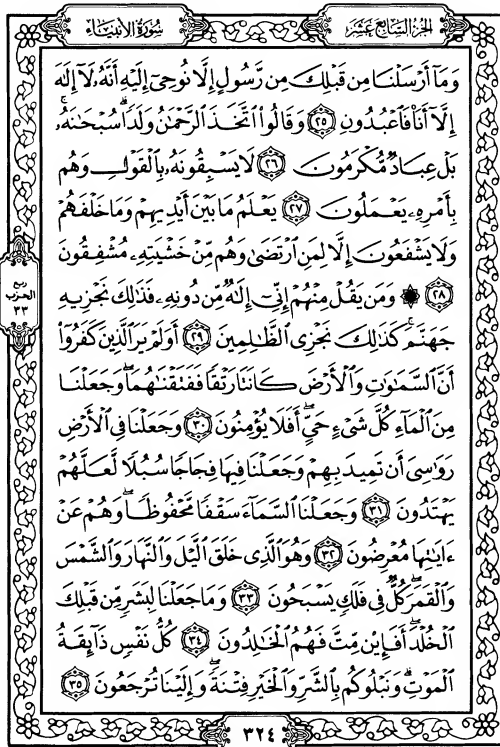 الجزء السابع عشر
سورة الأنبياء
وَمَآ أَرۡسَلۡنَا مِن قَبۡلِكَ مِن رَّسُولٍ إِلَّا نُوحِيٓ إِلَيۡهِ أَنَّهُۥ لَآ إِلَٰهَ
إِلَّآ أَنَا۠ فَٱعۡبُدُونِ ٢٥ وَقَالُواْ ٱتَّخَذَ ٱلرَّحۡمَٰنُ وَلَدٗاۗ سُبۡحَٰنَهُۥۚ
بَلۡ عِبَادٞ مُّكۡرَمُونَ ٢٦ لَا يَسۡبِقُونَهُۥ بِٱلۡقَوۡلِ وَهُم
بِأَمۡرِهِۦ يَعۡمَلُونَ ٢٧ يَعۡلَمُ مَا بَيۡنَ أَيۡدِيهِمۡ وَمَا خَلۡفَهُمۡ
وَلَا يَشۡفَعُونَ إِلَّا لِمَنِ ٱرۡتَضَىٰ وَهُم مِّنۡ خَشۡيَتِهِۦ مُشۡفِقُونَ
٢٨ ۞ وَمَن يَقُلۡ مِنۡهُمۡ إِنِّيٓ إِلَٰهٞ مِّن دُونِهِۦ فَذَٰلِكَ نَجۡزِيهِ
جَهَنَّمَۚ كَذَٰلِكَ نَجۡزِي ٱلظَّٰلِمِينَ ٢٩ أَوَلَمۡ يَرَ ٱلَّذِينَ كَفَرُوٓاْ
أَنَّ ٱلسَّمَٰوَٰتِ وَٱلۡأَرۡضَ كَانَتَا رَتۡقٗا فَفَتَقۡنَٰهُمَاۖ وَجَعَلۡنَا
مِنَ ٱلۡمَآءِ كُلَّ شَيۡءٍ حَيٍّۖ أَفَلَا يُؤۡمِنُونَ ٣٠ وَجَعَلۡنَا فِي ٱلۡأَرۡضِ
رَوَٰسِيَ أَن تَمِيدَ بِهِمۡ وَجَعَلۡنَا فِيهَا فِجَاجٗا سُبُلٗا لَّعَلَّهُمۡ
يَهۡتَدُونَ ٣١ وَجَعَلۡنَا ٱلسَّمَآءَ سَقۡفٗا مَّحۡفُوظٗاۖ وَهُمۡ عَنۡ
ءَايَٰتِهَا مُعۡرِضُونَ ٣٢ وَهُوَ ٱلَّذِي خَلَقَ ٱلَّيۡلَ وَٱلنَّهَارَ وَٱلشَّمۡسَ
وَٱلۡقَمَرَۖ كُلّٞ فِي فَلَكٖ يَسۡبَحُونَ ٣٣ وَمَا جَعَلۡنَا لِبَشَرٖ مِّن قَبۡلِكَ
ٱلۡخُلۡدَۖ أَفَإِيْن مِّتَّ فَهُمُ ٱلۡخَٰلِدُونَ ٣٤ كُلُّ نَفۡسٖ ذَآئِقَةُ
ٱلۡمَوۡتِۗ وَنَبۡلُوكُم بِٱلشَّرِّ وَٱلۡخَيۡرِ فِتۡنَةٗۖ وَإِلَيۡنَا تُرۡجَعُونَ ٣٥
ربع
الحزب
٣٣
٣٢٤